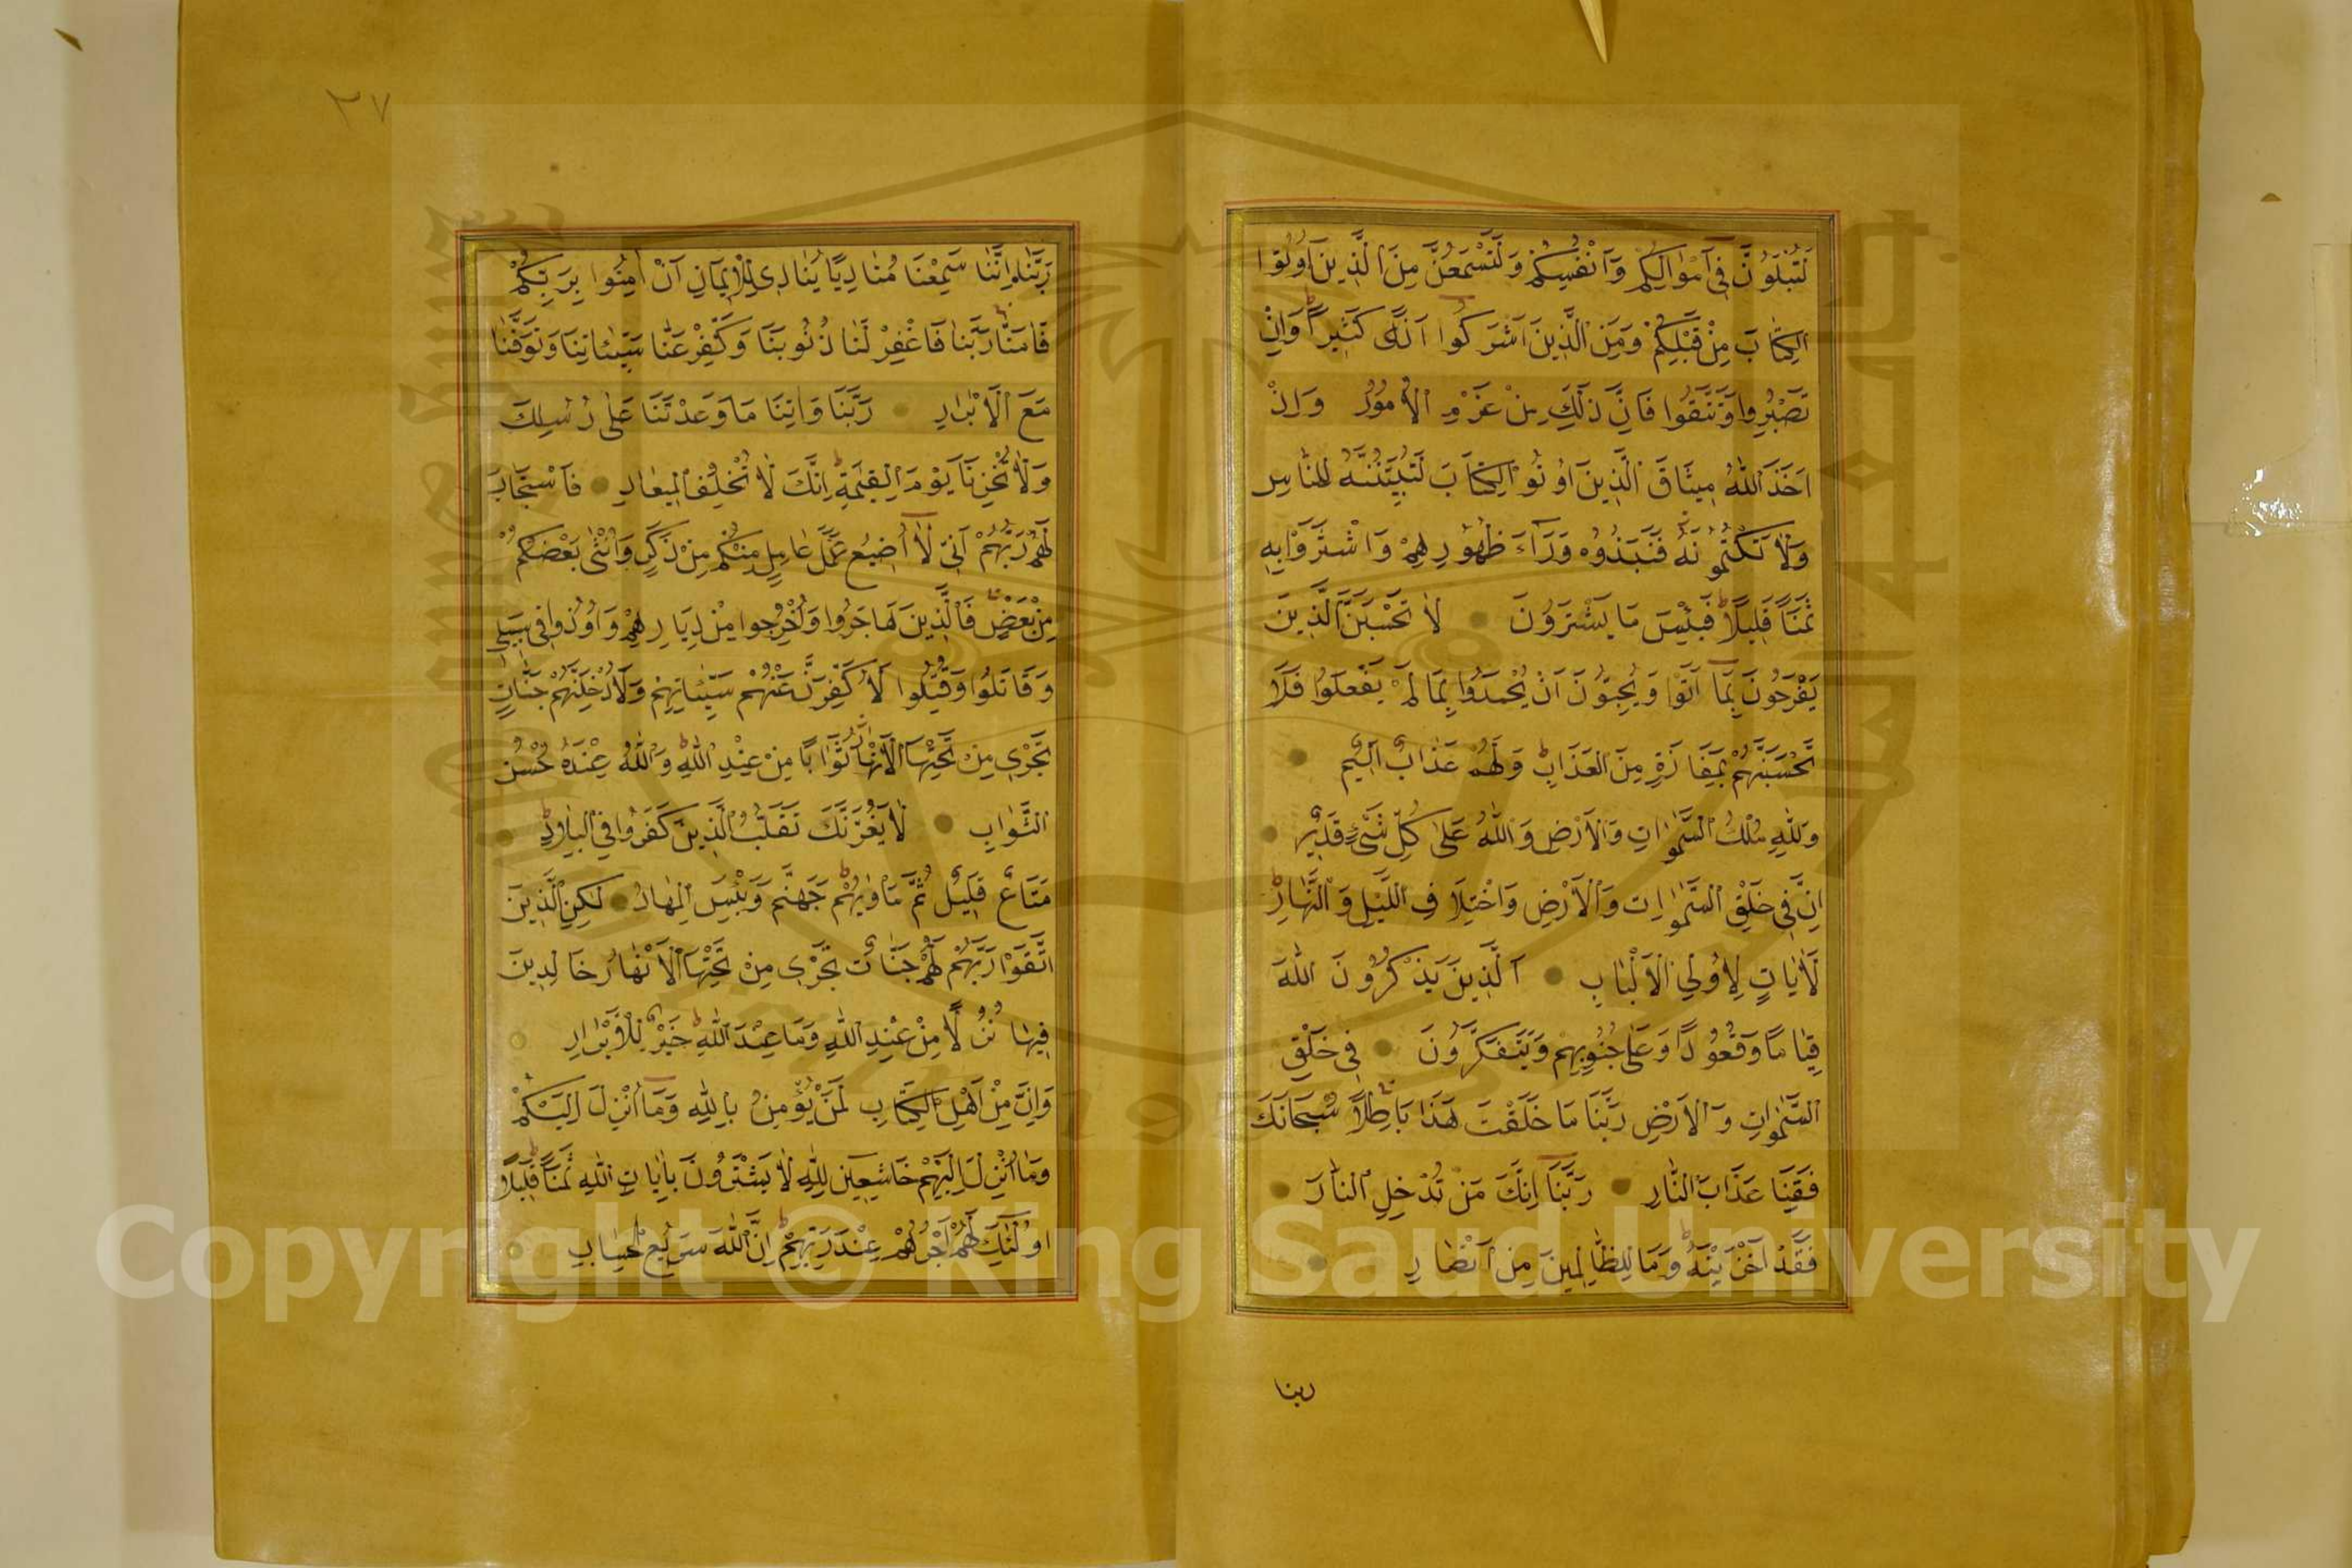 لَتُبْلَوُنَّ فِي اَمْوَالِكُمْ وَاَنْفُسِكُمْ وَلَتَسْمَعُنَّ مِنَ الَّذِينَ اُوتُوا
الْكِتَابَ مِنْ قَبْلِكُمْ وَمِنَ الَّذِينَ اَشْرَكُوا اَذًى كَثِيرًا وَاِنْ
تَصْبِرُوا وَتَتَّقُوا فَاِنَّ ذَلِكَ مِنْ عَزْمِ الْاُمُورِ وَاِذْ
اَخَذَ اللّٰهُ مِيثَاقَ الَّذِينَ اُوتُوا الْكِتَابَ لَتُبَيِّنُنَّهُ لِلنَّاسِ
وَلَا تَكْتُمُونَهُ فَنَبَذُوهُ وَرَآءَ ظُهُورِهِمْ وَاشْتَرَوْا بِهِ
ثَمَنًا قَلِيلًا فَبِئْسَ مَا يَشْتَرُونَ لَا تَحْسَبَنَّ الَّذِينَ
يَفْرَحُونَ بِمَآ اَتَوْا وَيُحِبُّونَ اَنْ يُحْمَدُوا بِمَا لَمْ يَفْعَلُوا فَلَا
تَحْسَبَنَّهُمْ بِمَفَازَةٍ مِنَ الْعَذَابِ وَلَهُمْ عَذَابٌ اَلِيمٌ
وَلِلّٰهِ مُلْكُ السَّمٰوَاتِ وَالْاَرْضِ وَاللّٰهُ عَلٰى كُلِّ شَيْءٍ قَدِيرٌ
اِنَّ فِي خَلْقِ السَّمٰوَاتِ وَالْاَرْضِ وَاخْتِلَافِ اللَّيْلِ وَالنَّهَارِ
لَاٰيَاتٍ لِاُولِي الْاَلْبَابِ اَلَّذِينَ يَذْكُرُونَ اللّٰهَ
قِيَامًا وَقُعُودًا وَعَلٰى جُنُوبِهِمْ وَيَتَفَكَّرُونَ فِي خَلْقِ
السَّمٰوَاتِ وَالْاَرْضِ رَبَّنَا مَا خَلَقْتَ هَذَا بَاطِلًا سُبْحَانَكَ
فَقِنَا عَذَابَ النَّارِ رَبَّنَآ اِنَّكَ مَنْ تُدْخِلِ النَّارَ
فَقَدْ اَخْزَيْتَهُ وَمَا لِلظَّالِمِينَ مِنْ اَنْصَارٍ
ربنا
٢٧
رَبَّنَآ اِنَّنَا سَمِعْنَا مُنَادِيًا يُنَادِي لِلْاِيمَانِ اَنْ اٰمِنُوا بِرَبِّكُمْ
فَاٰمَنَّا رَبَّنَا فَاغْفِرْ لَنَا ذُنُوبَنَا وَكَفِّرْ عَنَّا سَيِّئَاتِنَا وَتَوَفَّنَا
مَعَ الْاَبْرَارِ رَبَّنَا وَاٰتِنَا مَا وَعَدْتَنَا عَلٰى رُسُلِكَ
وَلَا تُخْزِنَا يَوْمَ الْقِيٰمَةِ اِنَّكَ لَا تُخْلِفُ الْمِيعَادَ فَاسْتَجَابَ
لَهُمْ رَبُّهُمْ اَنِّي لَآ اُضِيعُ عَمَلَ عَامِلٍ مِنْكُمْ مِنْ ذَكَرٍ وَاُنْثٰى بَعْضُكُمْ
مِنْ بَعْضٍ فَالَّذِينَ هَاجَرُوا وَاُخْرِجُوا مِنْ دِيَارِهِمْ وَاُوذُوا فِي سَبِيلِي
وَقَاتَلُوا وَقُتِلُوا لَاُكَفِّرَنَّ عَنْهُمْ سَيِّئَاتِهِمْ وَلَاُدْخِلَنَّهُمْ جَنَّاتٍ
تَجْرِي مِنْ تَحْتِهَا الْاَنْهَارُ ثَوَابًا مِنْ عِنْدِ اللّٰهِ وَاللّٰهُ عِنْدَهُ حُسْنُ
الثَّوَابِ لَا يَغُرَّنَّكَ تَقَلُّبُ الَّذِينَ كَفَرُوا فِي الْبِلَادِ
مَتَاعٌ قَلِيلٌ ثُمَّ مَاْوٰيهُمْ جَهَنَّمُ وَبِئْسَ الْمِهَادُ لٰكِنِ الَّذِينَ
اتَّقَوْا رَبَّهُمْ لَهُمْ جَنَّاتٌ تَجْرِي مِنْ تَحْتِهَا الْاَنْهَارُ خَالِدِينَ
فِيهَا نُزُلًا مِنْ عِنْدِ اللّٰهِ وَمَا عِنْدَ اللّٰهِ خَيْرٌ لِلْاَبْرَارِ
وَاِنَّ مِنْ اَهْلِ الْكِتَابِ لَمَنْ يُؤْمِنُ بِاللّٰهِ وَمَآ اُنْزِلَ اِلَيْكُمْ
وَمَآ اُنْزِلَ اِلَيْهِمْ خَاشِعِينَ لِلّٰهِ لَا يَشْتَرُونَ بِاٰيَاتِ اللّٰهِ ثَمَنًا قَلِيلًا
اُولٰئِكَ لَهُمْ اَجْرُهُمْ عِنْدَ رَبِّهِمْ اِنَّ اللّٰهَ سَرِيعُ الْحِسَابِ
Copyright © King Saud University